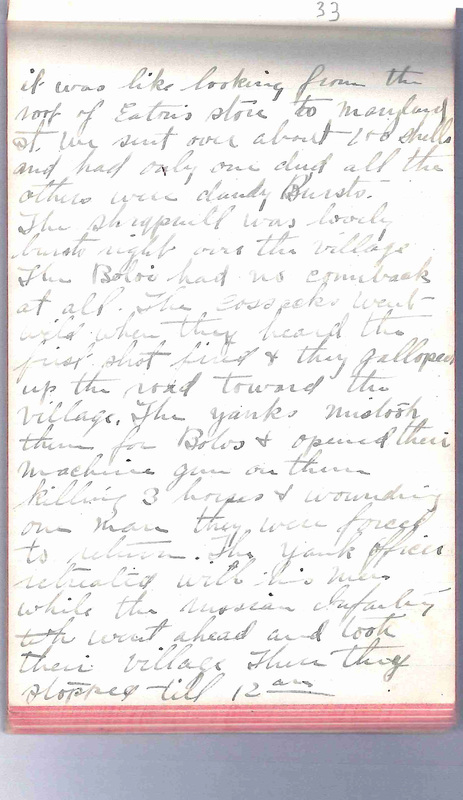 33
it was like looking from the
roof of Eatons store to Maryland
St. We sent over about 100 shells
and had only one dud all the
others were dandy Bursts.
The shrapnill was lovely
bursts right over the village
The Bolos had no comeback
at all. The Cossacks went
wild when they heard the
first shot fired & they galloped
up the road toward the
village. The Yanks mistook
them for Bolos & opened their
machine gun on them
killing 3 horses & wounding
one man they were forced
to return. The Yank officer
retreated with his men
while the russian Infantry
went ahead and took
their village Then they
stopped till 12 am